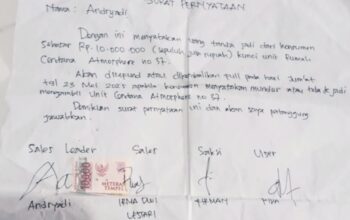 SURAT PERNYATAAN
Nama : Andryadi
Dengan ini menyatakan uang tanda jadi dari konsumen
Sebesar Rp. 10.000.000 (sepuluh juta rupiah) kunci unit Rumah
Cendana Atmosphere no 37.
Akan direfund atau dikembalikan full pada hari Jumat
tgl 23 Mei 2025 apabila konsumen menyatakan mundur atau tidak jadi
mengambil Unit Cendana Atmosphere no 37.
Demikian surat pernyataan ini dan akan saya pertanggung
jawabkan.
Sales Leader Sales Saksi User
10000
METERAI
TEMPEL
Andryadi IRMA DWI
LESTARI